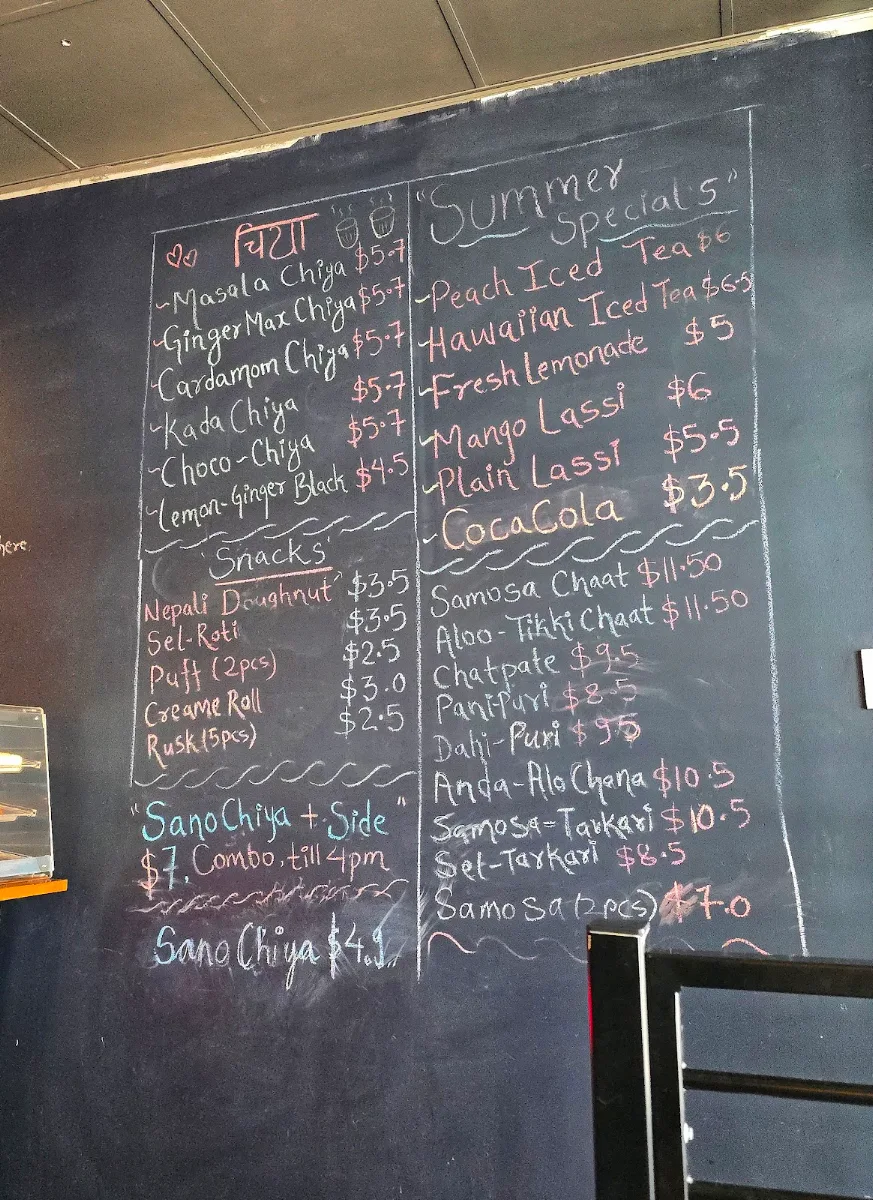 here.
चिया
~Masala Chiya $5.7
~Ginger Max Chiya $5.7
Cardamom Chiya $5.7
~Kada Chiya $5.7
~Choco-Chiya $5.7
~Lemon-Ginger Black $4.5
'Snacks'
Nepali Doughnut $3.5
Sel-Roti $3.5
Puff (2pcs) $2.5
Creame Roll $3.0
Rusk (5pcs) $2.5
"Sano Chiya + Side"
$7, Combo, till 4pm
Sano Chiya $4.5
"Summer
Specials"
~Peach Iced Tea $6
~Hawaiian Iced Tea $6.5
~Fresh Lemonade $5
~Mango Lassi $6
~Plain Lassi $5.5
~CocaCola $3.5
Samosa Chaat $11.50
Aloo-Tikki Chaat $11.50
Chatpate $9.5
Pani-Puri $8.5
Dahi-Puri $9.5
Anda-Alo Chana $10.5
Samosa-Tarkari $10.5
Sel-Tarkari $8.5
Samosa (2pcs) $7.0